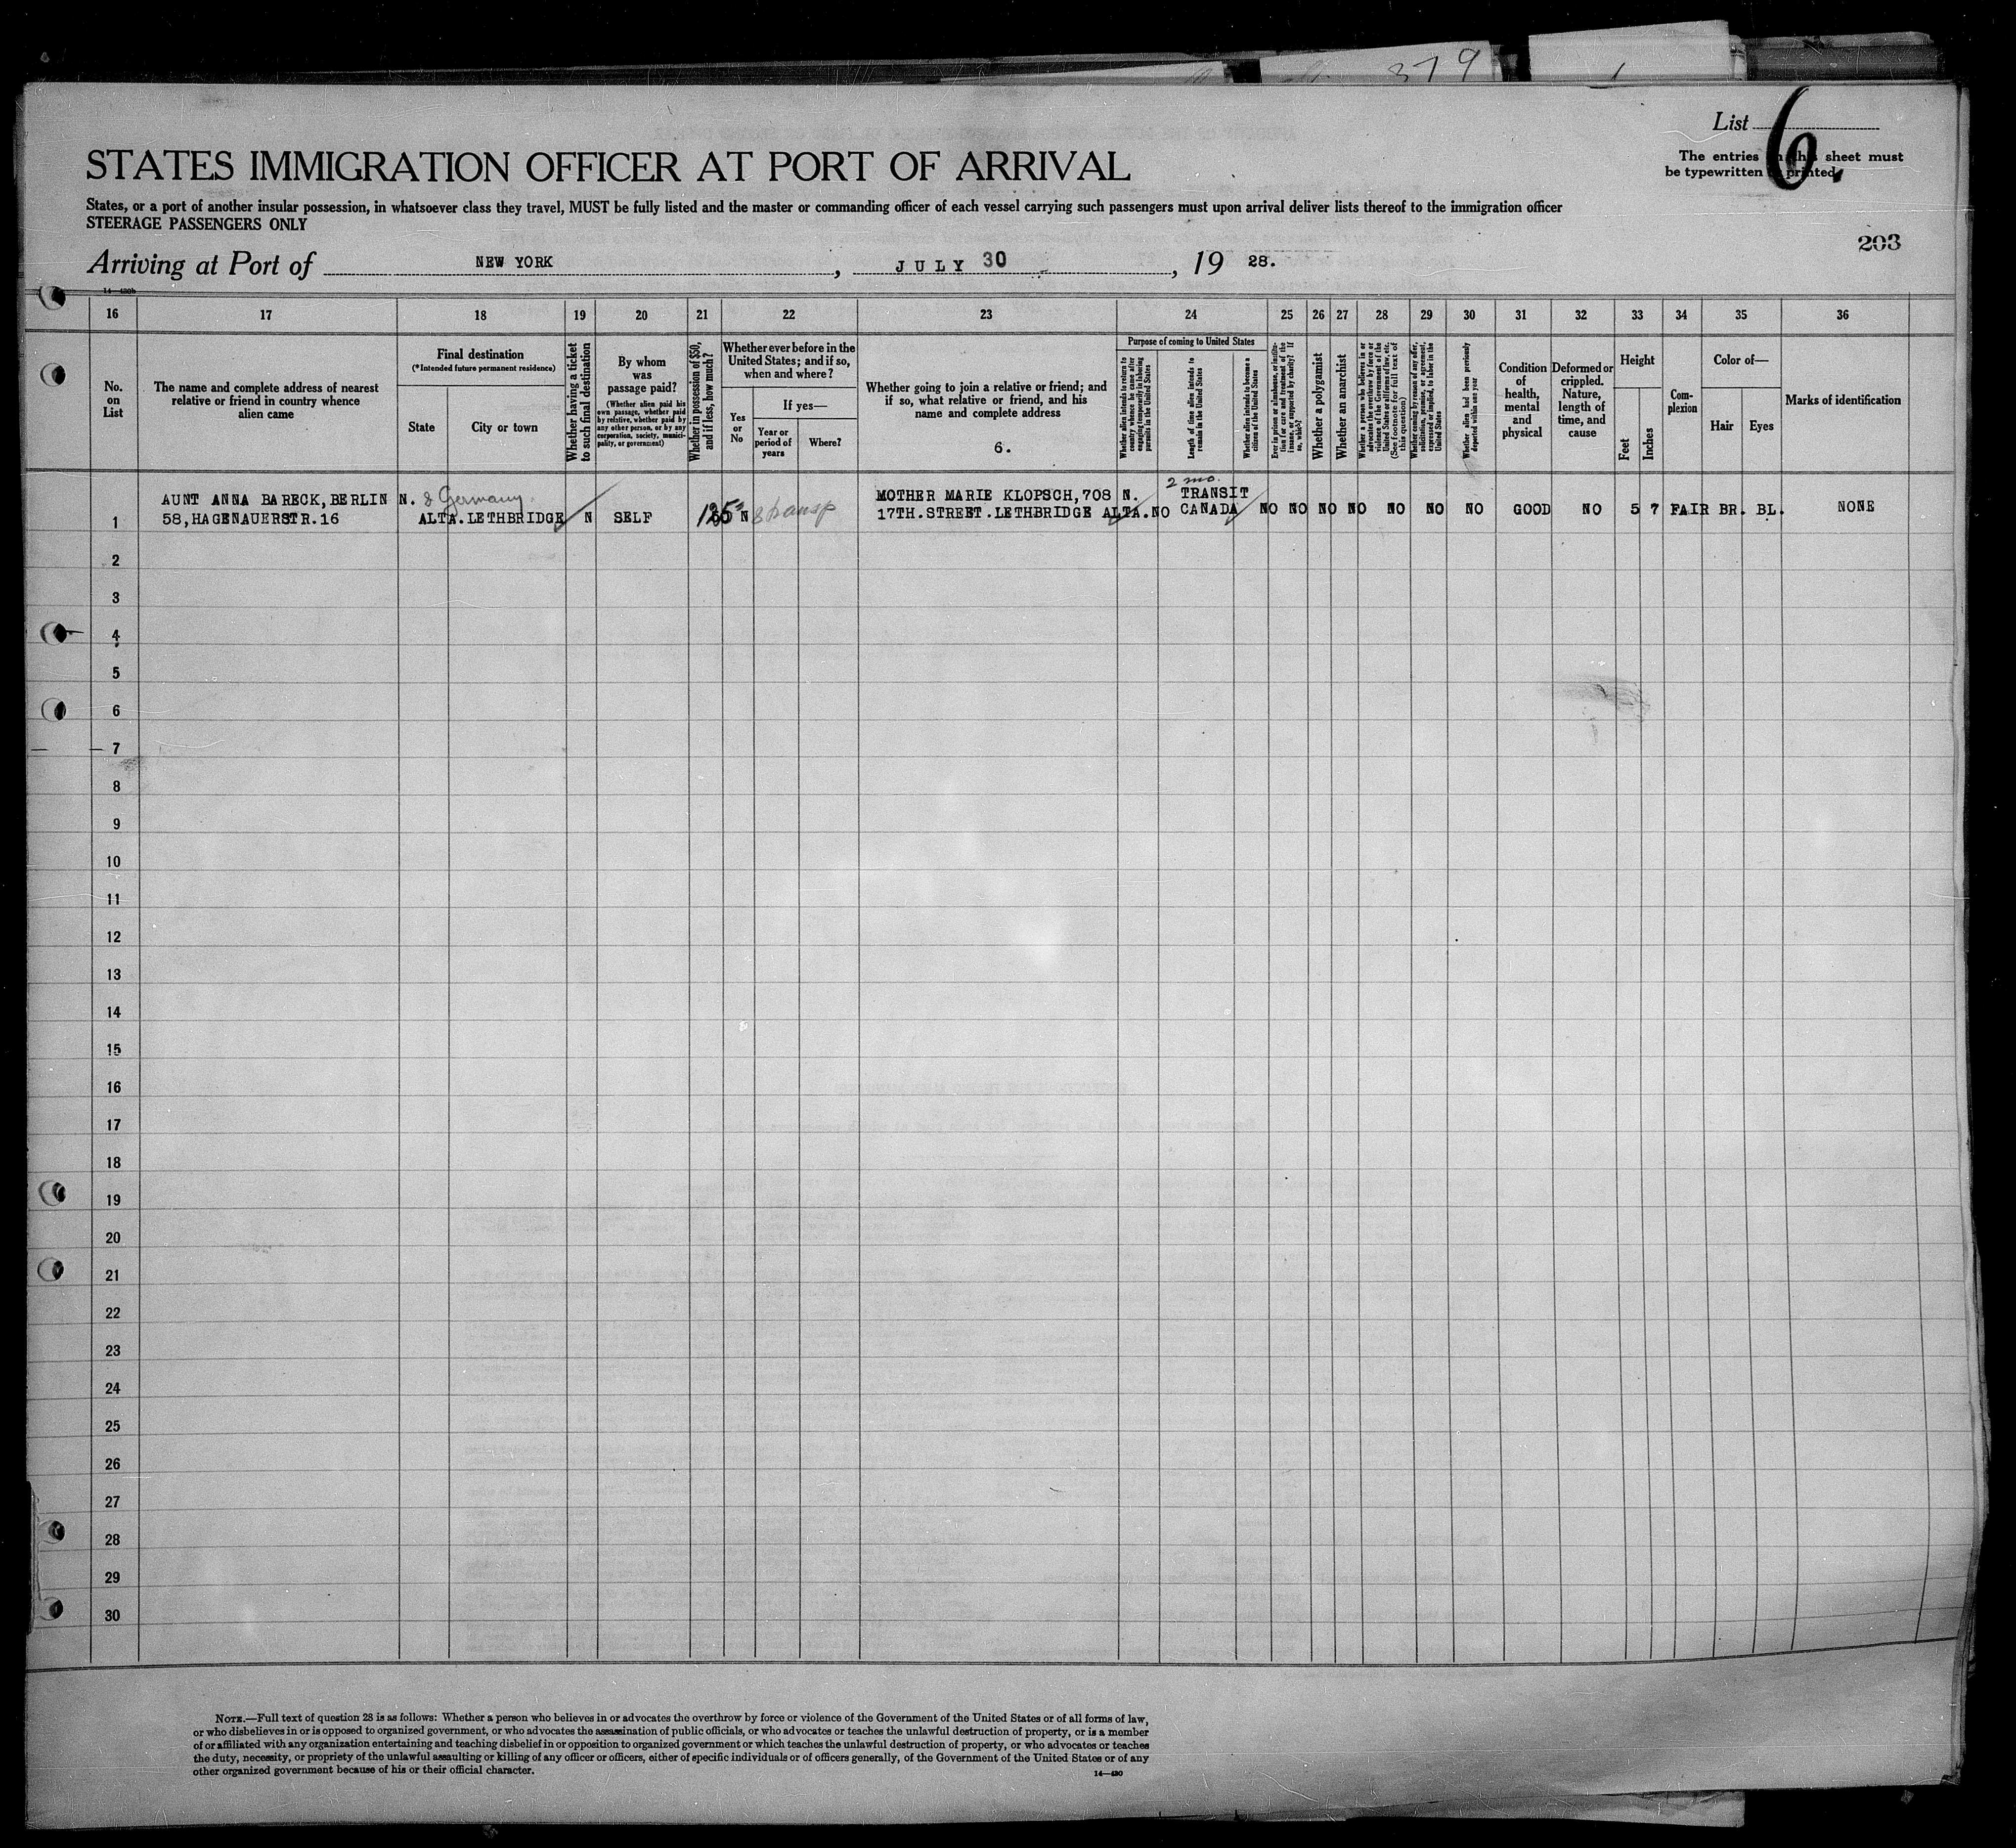 379
List 6.
The entries on this sheet must
be typewritten or printed.
STATES IMMIGRATION OFFICER AT PORT OF ARRIVAL
States, or a port of another insular possession, in whatsoever class they travel, MUST be fully listed and the master or commanding officer of each vessel carrying such passengers must upon arrival deliver lists thereof to the immigration officer
STEERAGE PASSENGERS ONLY
203
Arriving at Port of NEW YORK, JULY 30, 19 28.
14—430b
16 17 18 19 20 21 22 23 24 25 26 27 28 29 30 31 32 33 34 35 36
No. on List
The name and complete address of nearest
relative or friend in country whence
alien came
Final destination
(*Intended future permanent residence)
State
City or town
Whether having a ticket
to such final destination
By whom
was
passage paid?
(Whether alien paid his
own passage, whether paid
by relative, whether paid by
any other person, or by any
corporation, society, munici-
pality, or government)
Whether in possession of $50,
and if less, how much?
Whether ever before in the
United States; and if so,
when and where?
Yes
or
No
If yes—
Year or
period of
years
Where?
Whether going to join a relative or friend; and
if so, what relative or friend, and his
name and complete address
6.
Purpose of coming to United States
Whether alien intends to return to
country whence he came after
engaging temporarily in laboring
pursuits in the United States
Length of time alien intends to
remain in the United States
Whether alien intends to become a
citizen of the United States
Ever in prison or almshouse, or institu-
tion for care and treatment of the
insane, or supported by charity? If
so, which?
Whether a polygamist
Whether an anarchist
Whether a person who believes in or
advocates the overthrow by force or
violence of the Government of the
United States or all forms of law, etc.
(See footnote for full text of
this question)
Whether coming by reason of any offer,
solicitation, promise, or agreement,
expressed or implied, to labor in the
United States
Whether alien had been previously
deported within one year
Condition
of
health,
mental
and
physical
Deformed or
crippled.
Nature,
length of
time, and
cause
Height
Feet
Inches
Com-
plexion
Color of—
Hair
Eyes
Marks of identification
AUNT ANNA BARECK, BERLIN N. & Germany. MOTHER MARIE KLOPSCH, 708 N. 2 mo. TRANSIT
1 58, HAGENAUERSTR. 16 ALTA. LETHBRIDGE N SELF 125 N & transp 17TH. STREET. LETHBRIDGE ALTA. NO CANADA NO NO NO NO NO NO NO GOOD NO 5 7 FAIR BR. BL. NONE
2
3
4
5
6
7
8
9
10
11
12
13
14
15
16
17
18
19
20
21
22
23
24
25
26
27
28
29
30
NOTE.—Full text of question 28 is as follows: Whether a person who believes in or advocates the overthrow by force or violence of the Government of the United States or of all forms of law,
or who disbelieves in or is opposed to organized government, or who advocates the assassination of public officials, or who advocates or teaches the unlawful destruction of property, or is a member
of or affiliated with any organization entertaining and teaching disbelief in or opposition to organized government or which teaches the unlawful destruction of property, or who advocates or teaches
the duty, necessity, or propriety of the unlawful assaulting or killing of any officer or officers, either of specific individuals or of officers generally, of the Government of the United States or of any
other organized government because of his or their official character.
14—430